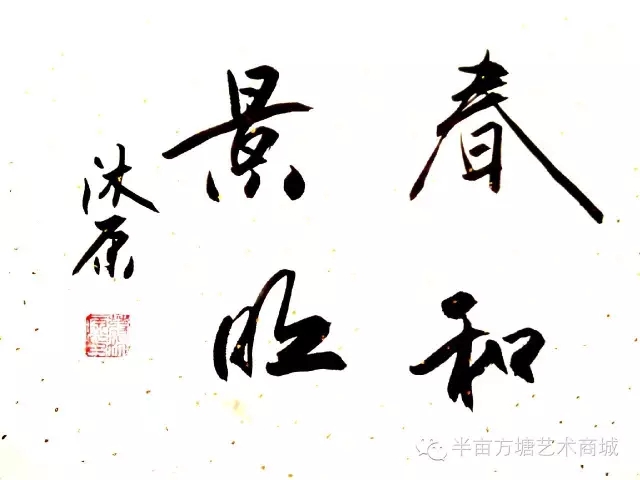 春和
景明
沐原
半亩方塘艺术商城